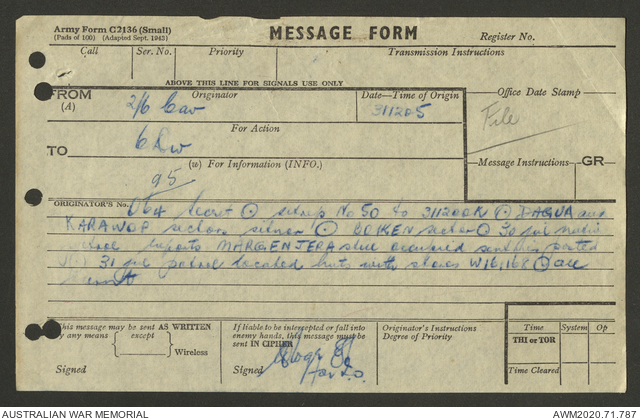 Army Form C2136 (Small)
(Pads of 100) (Adapted Sept. 1943)
MESSAGE FORM
Register No.
Call Ser. No. Priority Transmission Instructions
ABOVE THIS LINE FOR SIGNALS USE ONLY
FROM Originator Date—Time of Origin Office Date Stamp
(A) 2/6 Cav 311205
File
For Action
TO 6 Div
(w) For Information (INFO.) Message Instructions GR
95
ORIGINATOR'S No. O64 Secret ⊙ sitrep No 50 to 311200K ⊙ DAGUA and
KARAWOP sectors ⊙ BOIKEN sector ⊙ 30 jul
patrol reports MARGENJERA still occupied
31 jul patrol located huts with stores W16,168 ⊙ all
This message may be sent AS WRITTEN
by any means except
Wireless
Signed
If liable to be intercepted or fall into
enemy hands, this message must be
sent IN CIPHER
Signed
for I.O.
Originator's Instructions
Degree of Priority
Time System Op
THI or TOR
Time Cleared
AUSTRALIAN WAR MEMORIAL AWM2020.71.787